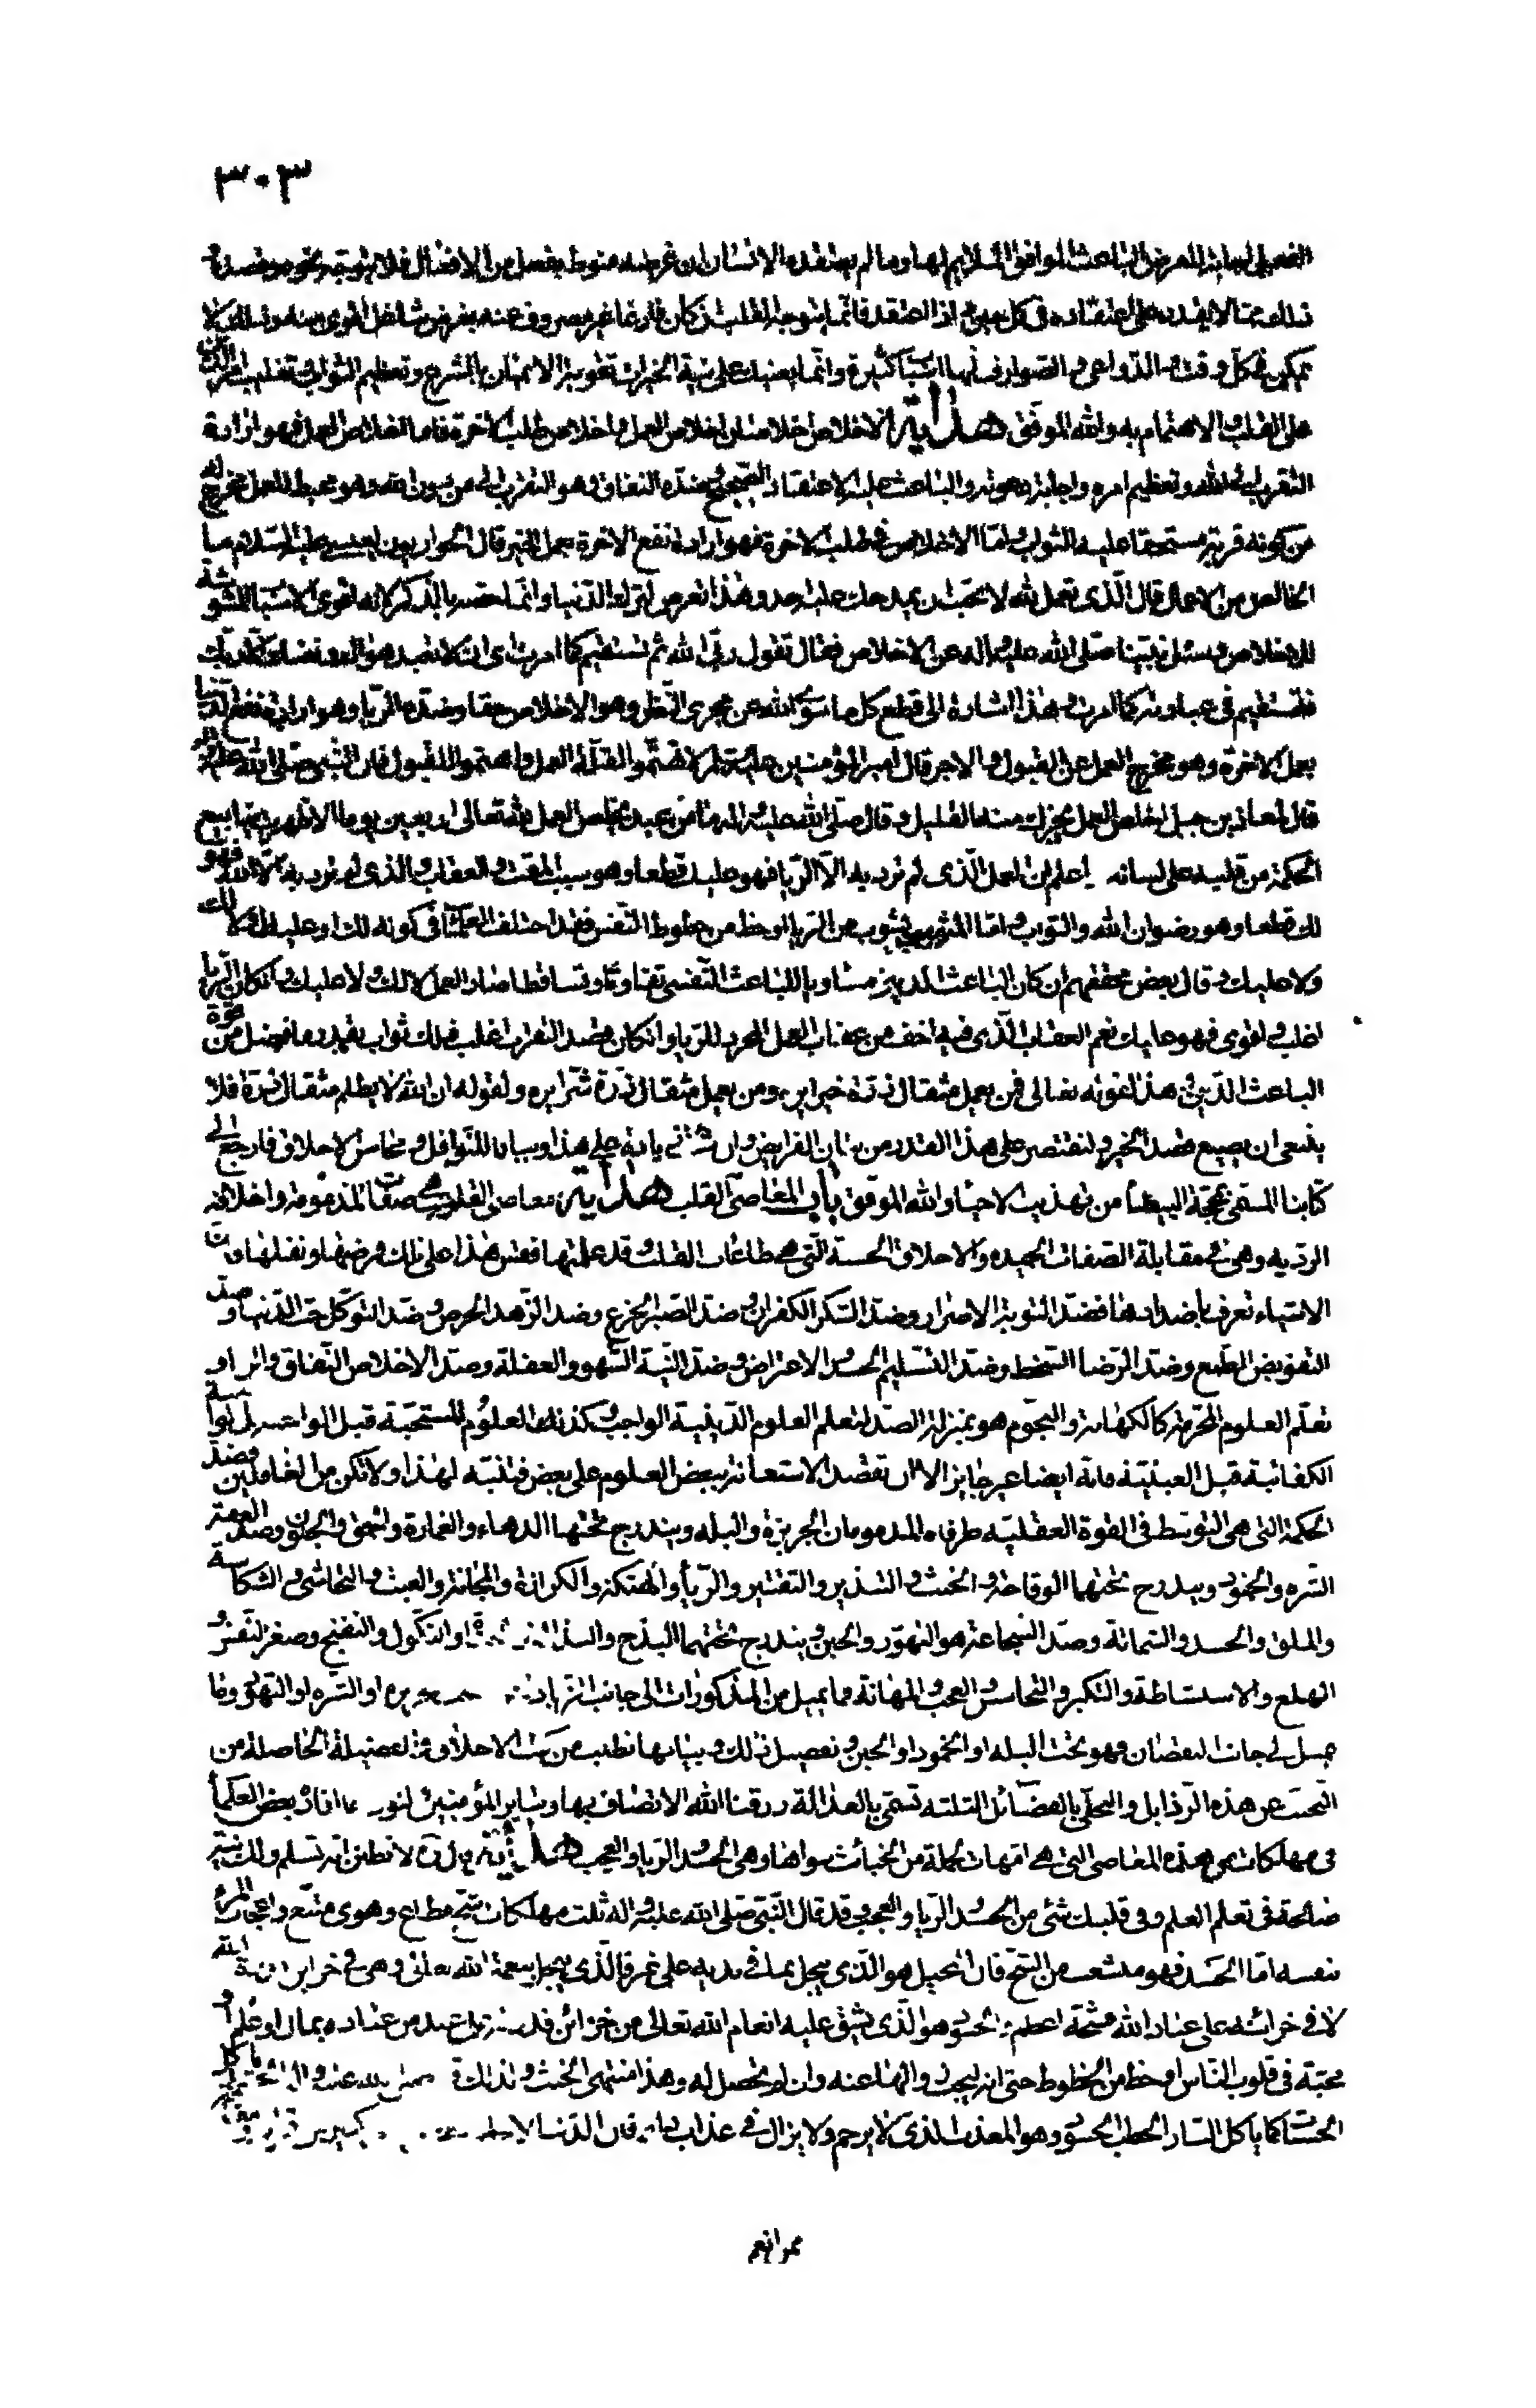 ٣٠٣
الفعل اجابة للغرض الباعث الموافق الملائم لها وما لم يعتقد الانسان ان غرضه منوط بفعل من الافعال فلا يتوجه نحوه قصده
وذلك مما لا يقدر على اعتقاده في كل حين واذا اعتقد فانما يتوجه القلب اذا كان فارغا غير مصروف عنه بغرض شاغل اقوى منه وذلك لا
يمكن في كل وقت والدواعي والصوارف لها اسباب كثيرة وانما يعينك على نية الخيرات تقوية الايمان بالشرع وتعظيم الثواب وتغليب امر الدين
على القلب والاهتمام به والله الموفق هداية الاخلاص اخلاصان اخلاص العمل واخلاص طلب الاخرة فاما اخلاص العمل فهو ارادة
التقرب الى الله وتعظيم امره واجابة دعوته والباعث عليه الاعتقاد الصحيح وضده النفاق وهو التقرب الى من دون الله وهو محبط للعمل مخرج له
من كونه قربة مستحقا عليه الثواب واما الاخلاص في طلب الاخرة فهو ارادة نفع الاخرة بعمل الخير قال الحواريون لعيسى عليه السلام ما
الخالص من الاعمال قال الذي تعمل لله لا تحب ان يمدحك عليه احد وهذا تعرض لترك الدنيا وانما خصه بالذكر لانه اقوى الاسباب المشوشة
للاخلاص وسئل نبينا صلى الله عليه واله عن الاخلاص فقال تقول ربي الله ثم تستقيم كما امرت اى لا تعبد هواك ونفسك ولا تعبد الا ربك
فتستقيم في عبادته كما امرت وهذا اشارة الى قطع كل ما سوى الله عن مجرى النظر وهو الاخلاص حقا وضده الريا وهو ارادة نفع الدنيا
بعمل الاخرة وهو مخرج العمل عن القبول والاجر قال امير المؤمنين عليه السلام لا تهتموا لقلة العمل واهتموا للقبول فان النبى صلى الله عليه واله
قال لمعاذ بن جبل اخلص العمل يجزك منه القليل وقال صلى الله عليه واله ما من عبد يخلص العمل لله تعالى اربعين يوما الا ظهرت ينابيع
الحكمة من قلبه على لسانه اعلم ان العمل الذى لم ترد به الا الريا فهو عليك قطعا وهو سبب المقت والعقاب والذى لم ترد به الا الله فهو
لك قطعا وهو رضوان الله والثواب واما المشوب بشوب من الريا او حظ من حظوظ النفس فقد اختلف العلماء في كونه لك او عليك او لا لك
ولا عليك وقال بعض محققيهم ان كان الباعث الدينى مساويا للباعث النفسى تقاوما وتساقطا صار العمل لا لك ولا عليك وان كان الريا
اغلب واقوى فهو عليك نعم العقاب الذى فيه اخف من عقاب العمل المجرد للريا وان كان قصد التقرب اغلب فلك ثواب بقدر ما فضل من قوة
الباعث الدينى وهذا لقوله تعالى فمن يعمل مثقال ذرة خيرا يره ومن يعمل مثقال ذرة شرا يره ولقوله ان الله لا يظلم مثقال ذرة فلا
ينبغى ان يضيع قصد الخير ولنقتصر على هذا القدر من بيان الفرايض وان شئت زيادة على هذا وبيانا للنوافل ومحاسن الاخلاق فارجع الى
كتابنا المسمى بمحجة البيضاء من تهذيب الاحياء والله الموفق باب المعاصى القلب هداية معاصى القلب هى صفات المذمومة واخلاقه
الردية وهى في مقابلة الصفات الحميدة والاخلاق الحسنة التى هى طاعات القلب وقد علمتها فقس هذا على ذلك فرضها ونفلها وان
الاشياء تعرف باضدادها فضد التوبة الاصرار وضد الشكر الكفران وضد الصبر الجزع وضد الزهد الحرص وضد التوكل حب الدنيا وضد
التفويض الطمع وضد الرضا السخط وضد التسليم الحسد والاعتراض وضد النية السهو والغفلة وضد الاخلاص النفاق والريا و
تعلم العلوم المحرمة كالكهانة والنجوم هو بمنزلة الضد لتعلم العلوم الدينية الواجبة وكذلك العلوم المستحبة قبل الواجبة بل الواجبة
الكفائية قبل العينية فانه ايضا غير جايز الا ان تقصد الاستعانة ببعض العلوم على بعض فتنبه لهذا ولا تكن من الغافلين وضد
الحكمة التى هى التوسط في القوة العقلية طرفاه المذمومان الجربزة والبله ويندرج تحتهما الدهاء والغمارة والحمق والجنون وضد العفة
الشره والخمود ويندرج تحتهما الوقاحة والخنث والتبذير والتقتير والريأ والهتكة والكزازة والمجانة والعبث والتحاشى والشكاسة
والملق والحسد والشماتة وضد الشجاعة هو التهور والجبن ويندرج تحتهما البذخ والنكول والتفنج وصغر النفس و
الهلع والاستشاطة والتكبر والتخاسس والعجب والمهانة فما يميل من المذكورات الى جانب الزيادة او الشره او التهور وما
يميل الى جانب النقصان فهو تحت البله او الخمود او الجبن وتفصيل ذلك وبيانها تطلب من كتب الاخلاق والفضيلة الحاصلة من
التجنب عن هذه الرذايل والتحلى بالفضائل الثلثة تسمى بالعدالة رزقنا الله الاتصاف بها وساير المؤمنين لنورد ما افاده بعض العلمأ
في مهلكات من هذه المعاصى التى هى امهات لجملة من الخبائث سواها وهى الحسد والريا والعجب هداية لا تظنن انه تسلم ولك نية
صالحة في تعلم العلم وفي قلبك شئ من الحسد والريا والعجب وقد قال النبى صلى الله عليه واله ثلث مهلكات شح مطاع وهوى متبع واعجاب المرء
بنفسه اما الحسد فهو متشعب من الشح فان البخيل هو الذى يبخل بما في يديه على غيره والذى يبخل بنعمة الله تعالى وهى في خزاين قدرة الله
لا في خزائنه على عباد الله فشحه اعظم والحسود هو الذى يشق عليه انعام الله تعالى من خزائن قدرته على عبد من عباده بمال او علم او
محبة في قلوب الناس او حظ من الحظوظ حتى انه ليحب زوالها عنه وان لم يحصل له وهذا منتهى الخبث ولذلك قال صلى الله عليه واله الحسد ياكل
الحسنات كما ياكل النار الحطب والحسود هو المعذب الذى لا يرحم ولا يزال في عذاب دايم فان الدنيا لا
من اقرانه